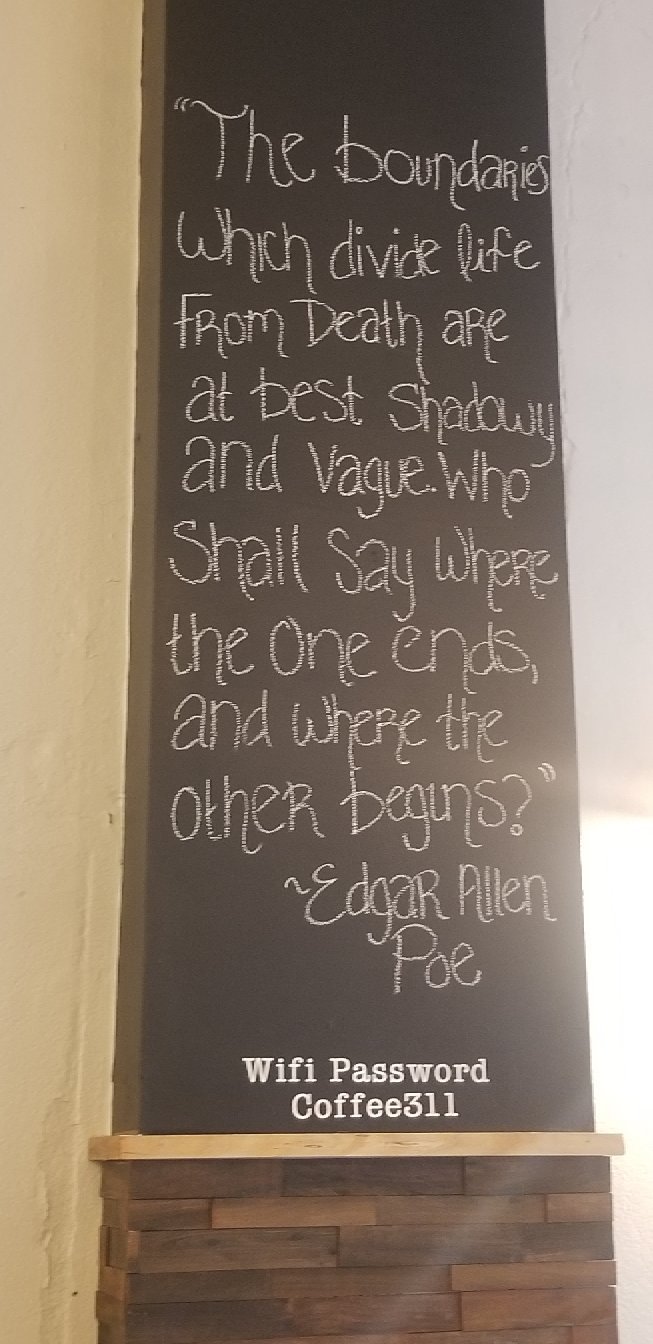 "The boundaries
Which divide life
From Death are
at best Shadowy
and Vague. Who
Shall Say where
the One ends,
and where the
other begins?"
~Edgar Allen
Poe
Wifi Password
Coffee311